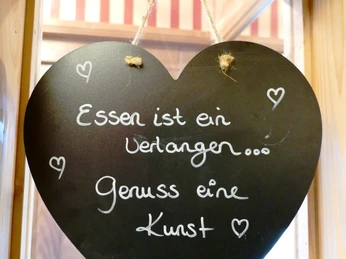 Essen ist ein
Verlangen...
Genuss eine
Kunst